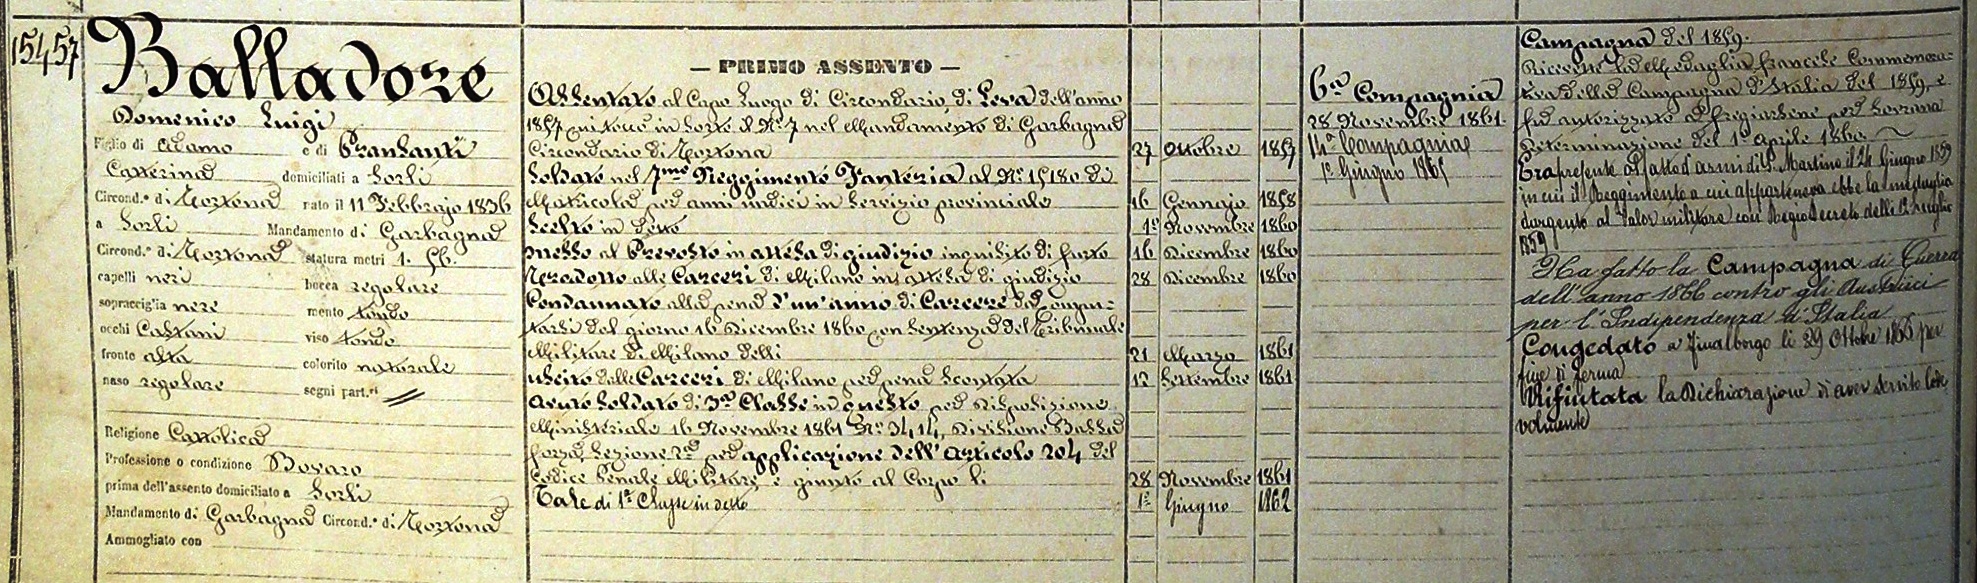 15457
Balladore
Domenico Luigi
Figlio di Adamo e di Transanti
Catterina domiciliati a Sorli
Circond.º di Tortona nato il 11 Febbrajo 1836
a Sorli Mandamento di Garbagna
Circond.º di Tortona statura metri 1. 56.
capelli neri bocca regolare
sopracciglia nere mento tondo
occhi Castani viso tondo
fronte alta colorito naturale
naso regolare segni part.ri //
Religione Cattolica
Professione o condizione Bovaro
prima dell'assento domiciliato a Sorli
Mandamento di Garbagna Circond.º di Tortona
Ammogliato con
— PRIMO ASSENTO —
Assentato al Capo Luogo di Circondario, di Leva dell'anno
1857 in sorte il Nº 7 nel Mandamento di Garbagna
Circondario di Tortona 27 Ottobre 1857
Soldato nel 7mo Reggimento Fanteria al Nº 15180 di
Matricola per anni undici in servizio provinciale 16 Gennajo 1858
Scelto in detto 1º Novembre 1860
messo al Prevosto in attesa di giudizio inquisito di furto 16 Dicembre 1860
Tradotto alle Carceri di Milano in attesa di giudizio 28 Dicembre 1860
Condannato alla pena d'un'anno di Carcere da compu-
tarsi del giorno 16 Dicembre 1860 con Sentenza del Tribunale
Militare di Milano delli 21 Marzo 1861
uscito dalle Carceri di Milano per pena scontata 12 Settembre 1861
Soldato di 3a Classe in questo per Disposizione
Ministeriale 16 Novembre 1861 Nº 3414, Divisione Bassa
forza, Sezione 2a per applicazione dell'Articolo 204 del
Codice Penale Militare, e giunto al Corpo li 28 Novembre 1861
Tale di 1ª Classe in detto 1º Giugno 1862
6a Compagnia
28 Novembre 1861.
14a Compagnia
1º Giugno 1865
Campagna del 1859.
Ricevette la Medaglia francese Commemora-
tiva della Campagna d'Italia del 1859, e
fu autorizzato a fregiarsene per Sovrana
Determinazione del 1º Aprile 1860
Era presente al fatto d'armi di S. Martino il 24 Giugno 1859
in cui il Reggimento a cui apparteneva ebbe la medaglia
d'argento al Valor militare con Regio Decreto delli 12 Luglio
1859
Ha fatto la Campagna di Guerra
dell'anno 1866 contro gli Austriaci
per l'Indipendenza d'Italia
Congedato a Finalborgo li 29 Ottobre 1866 per
fine di ferma
Rifiutata la Dichiarazione di aver servito lode
volmente